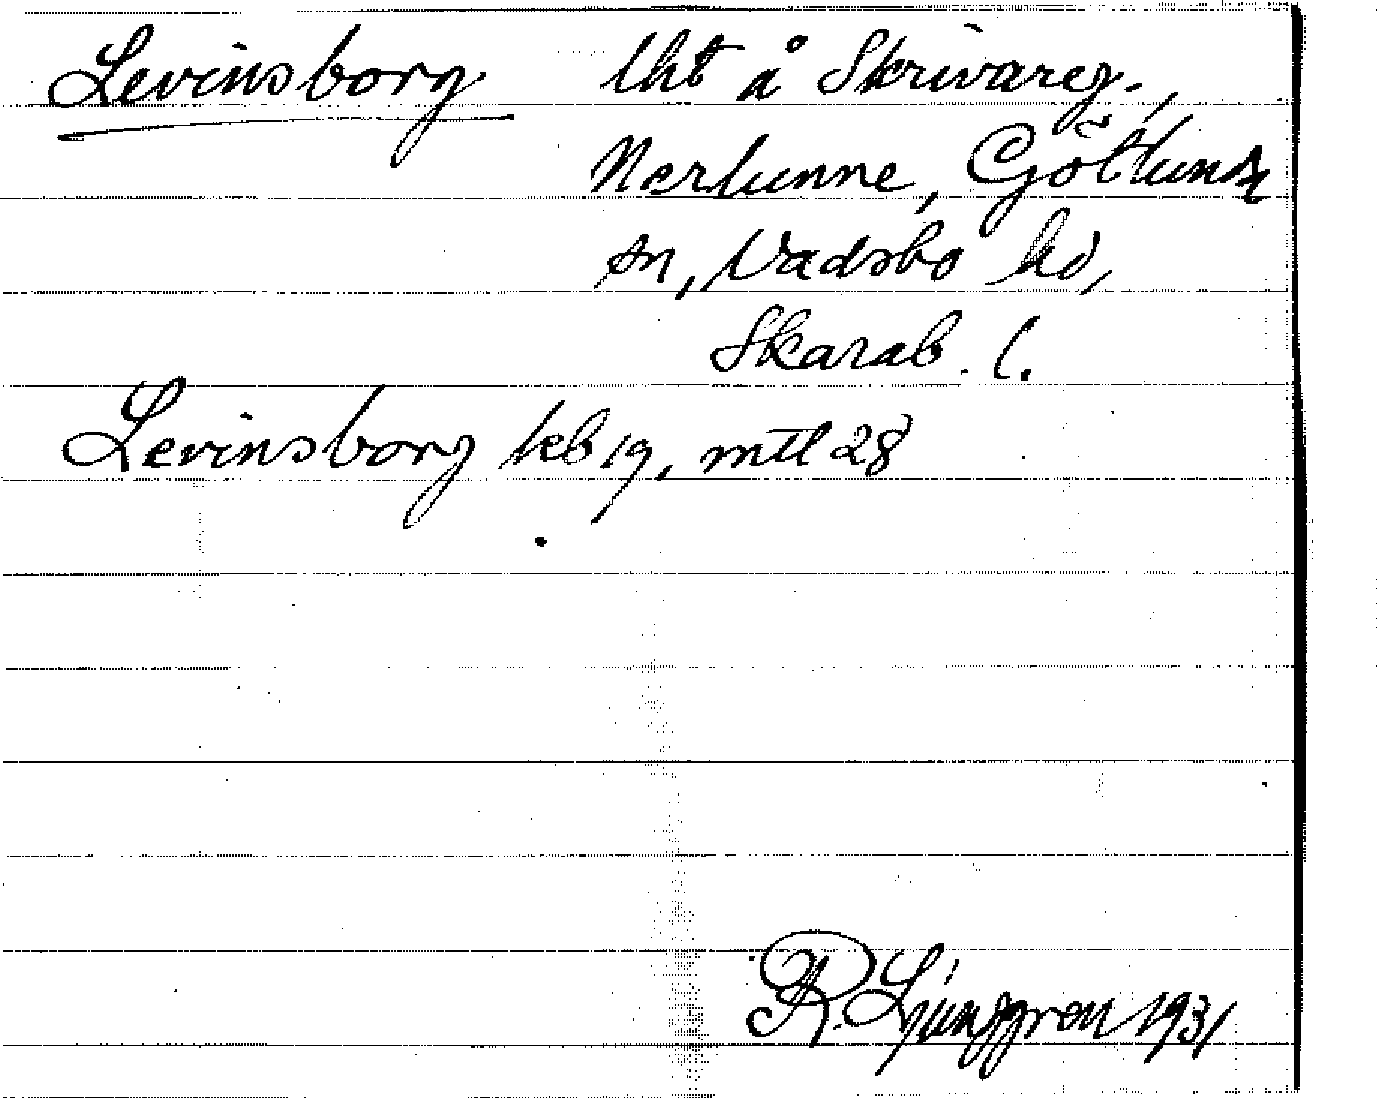 Levinsborg lht å Skrivareg.,
Nerlunne, Götlunda
sn, Vadsbo hd,
Skarab. l.
Levinsborg kb 19, mtl 28
R. Ljunggren 1931